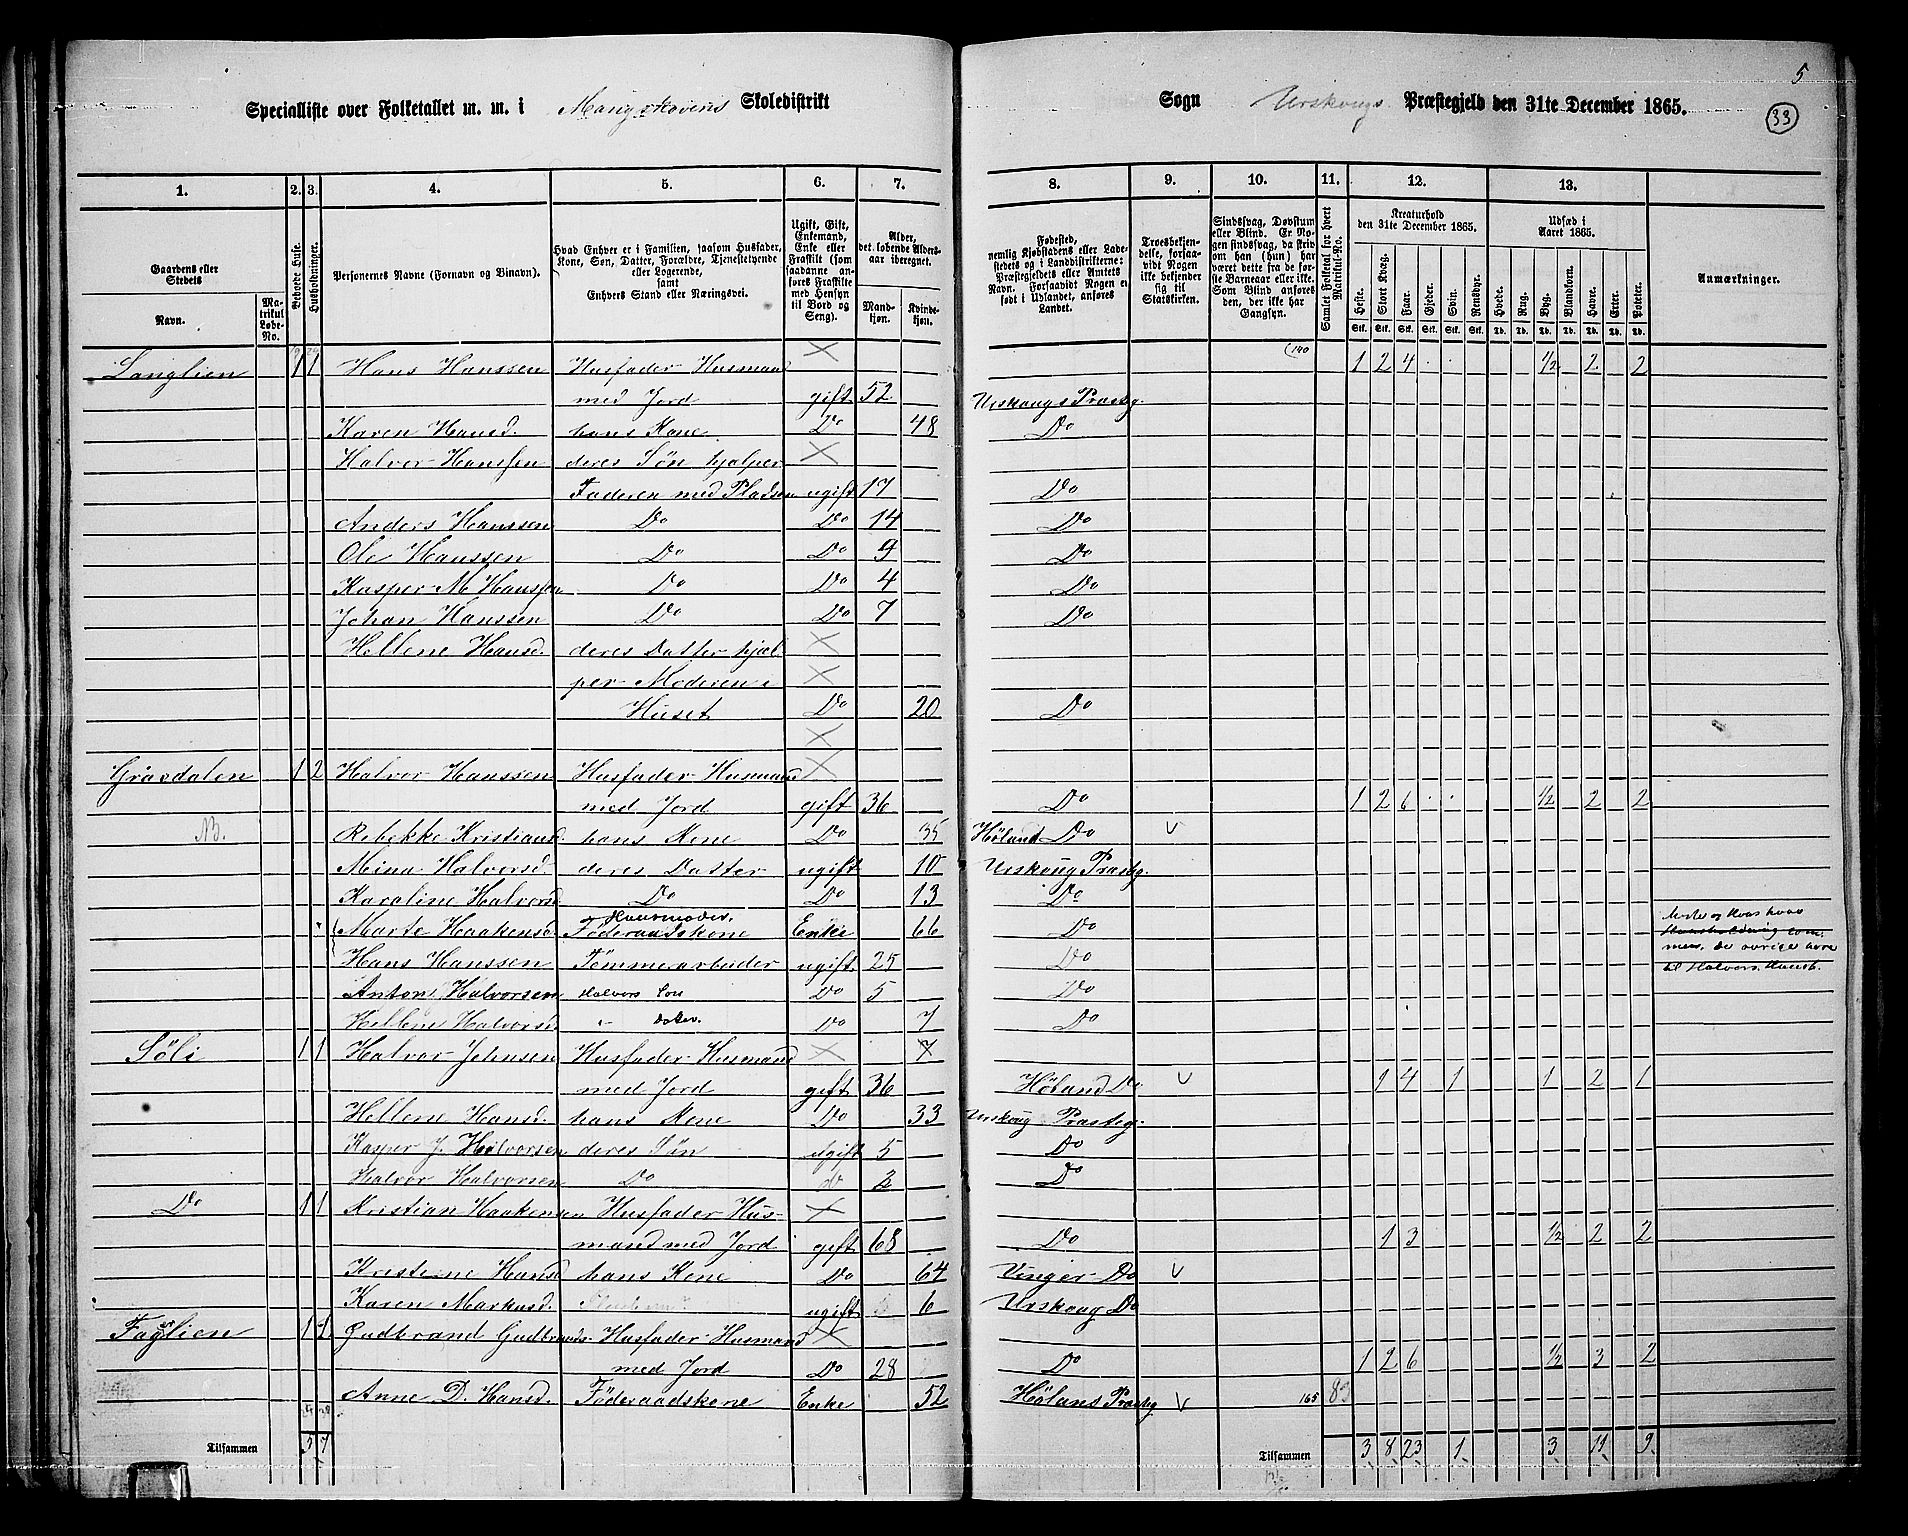 5
Specialliste over Folketallet m. m. i Mangskovens Skoledistrikt Sogn Urskougs Præstegjeld den 31te December 1865.
33
1. 2. 3. 4. 5. 6. 7. 8. 9. 10. 11. 12. 13.
Gaardens eller Stedets Navn. Matrikul Løbe-No. Beboede Huse. Husholdninger. Personernes Navne (Fornavn og Binavn). Hvad Enhver er i Familien, saasom Husfader, Kone, Søn, Datter, Forældre, Tjenestetyende eller Logerende, samt Enhvers Stand eller Næringsvei. Ugift, Gift, Enkemand, Enke eller Fraskilt (som saadanne anføres Fraskilte med Hensyn til Bord og Seng). Alder, det løbende Aldersaar iberegnet. Mandkjøn. Kvindekjøn. Fødested, nemlig Kjøbstadens eller Ladestedets og i Landdistrikterne: Præstegjeldets eller Amtets Navn. Forsaavidt Nogen er født i Udlandet, anføres Landet. Troesbekjendelse, forsaavidt Nogen ikke bekjender sig til Statskirken. Sindssvag, Døvstum eller Blind. Er Nogen sindssvag, da skriv om han (hun) har været dette fra de første Barneaar eller ikke. Som Blind anføres den, der ikke har Gangsyn. Samlet Folketal for hvert Matrikul-No. Kreaturhold den 31te December 1865. Heste. Stort Kvæg. Faar. Gjeder. Svin. Rensdyr. Udsæd i Aaret 1865. Hvede. Rug. Byg. Blandkorn. Havre. Erter. Poteter. Anmærkninger.
Stk. Stk. Stk. Stk. Stk. Stk. Td. Td. Td. Td. Td. Td. Td.
Langlien 1 1 Hans Hanssen Husfader Husmand × 1 2 4 ½ 2 2
med Jord gift 52 Urskougs Præstg.
Karen Hansd. hans Kone Do 48 Do
Halvor Hanssen deres Søn hjælper ×
Faderen med Pladsen ugift 17 Do
Anders Hanssen Do Do 14 Do
Ole Hanssen Do Do 9 Do
Kasper M Hanssen Do Do 4 Do
Johan Hanssen Do Do 7 Do
Hellene Hansd. deres Datter hjæl- ×
per Moderen i ×
Huset Do 20 Do
×
Gråsdalen 1 2 Halvor Hanssen Husfader Husmand ×
med Jord gift 36 Do 1 2 6 ½ 2 2
Rebekke Kristiansd. hans Kone Do 35 Høland Do v
Mina Halvorsd. deres Datter ugift 10 Urskoug Præstg.
Karoline Halvorsd Do Do 13 Do
Marte Haakensd Huusmoder. Føderaadskone Enke 66 Do
Hans Hanssen Tømmerarbeider ugift 25 Do
til Halvors Huush.
Anton Halvorsen Halvors Søn Do 5 Do
Hellene Halvorsd. " Datter. Do 7 Do
Søli 1 1 Halvor Johnsen Husfader Husmand × 7
med Jord gift 36 Høland Do v 1 4 1 1 2 1
Hellene Hansd. hans Kone Do 33 Urskoug Præstg.
Kasper J. Halvorsen deres Søn ugift 5 Do
Halvor Halvorsen Do do 2 Do
Do 1 1 Kristian Haakensen Husfader Hus- ×
mand med Jord gift 68 Do 1 3 ½ 2 2
Kristene Hansd hans Kone Do 64 Vinger Do v
Karen Markusd. ugift 6 Urskoug Do
Faglien 1 1 Gudbrand Gudbrands. Husfader Husmand ×
med Jord Do 28 Do 1 2 6 ½ 3 2
Anne D. Hansd. Føderaadskone Enke 52 Hølans Præstg v 165 83
Tilsammen 5 7 Tilsammen 3 8 23 1 3 11 9